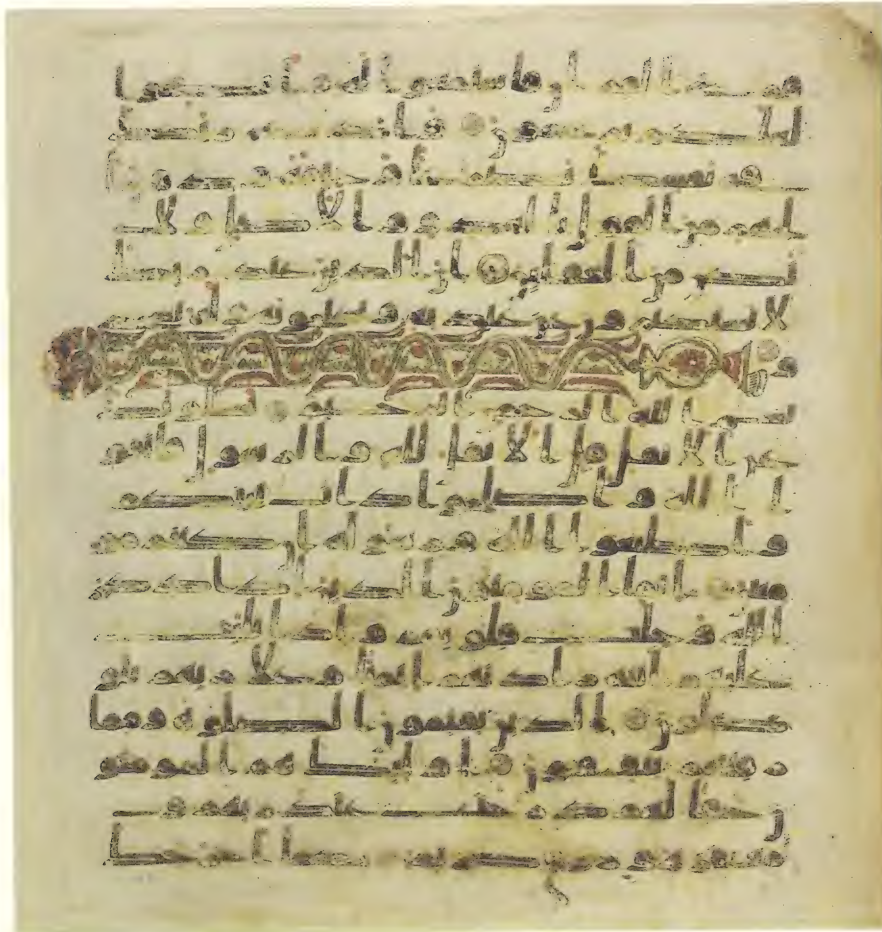 قرى القران فاستمعوا له وانصتوا
لعلكم ترحمون واذكر ربك
في نفسك تضرعا وخيفة ودون ا
لجهر من القول بالغدو والاصال ولا
تكن من الغفلين ان الذين عند ربك
لا يستكبرون عن عبادته ويسبحونه وله يسجد
ون
بسم الله الرحمن الرحيم يسلونك
عن الانفال قل الانفال لله والرسول فاتقو
ا الله واصلحوا ذات بينكم
واطيعوا الله ورسوله ان كنتم مو
منين انما المومنون الذين اذا ذكر
الله وجلت قلوبهم واذا تليت
عليهم ايته زادتهم ايمنا وعلى ربهم يتو
كلون الذين يقيمون الصلوة ومما
رزقنهم ينفقون اوليك هم المومنو
ن حقا لهم درجت عند ربهم و
مغفرة ورزق كريم كما اخرجك